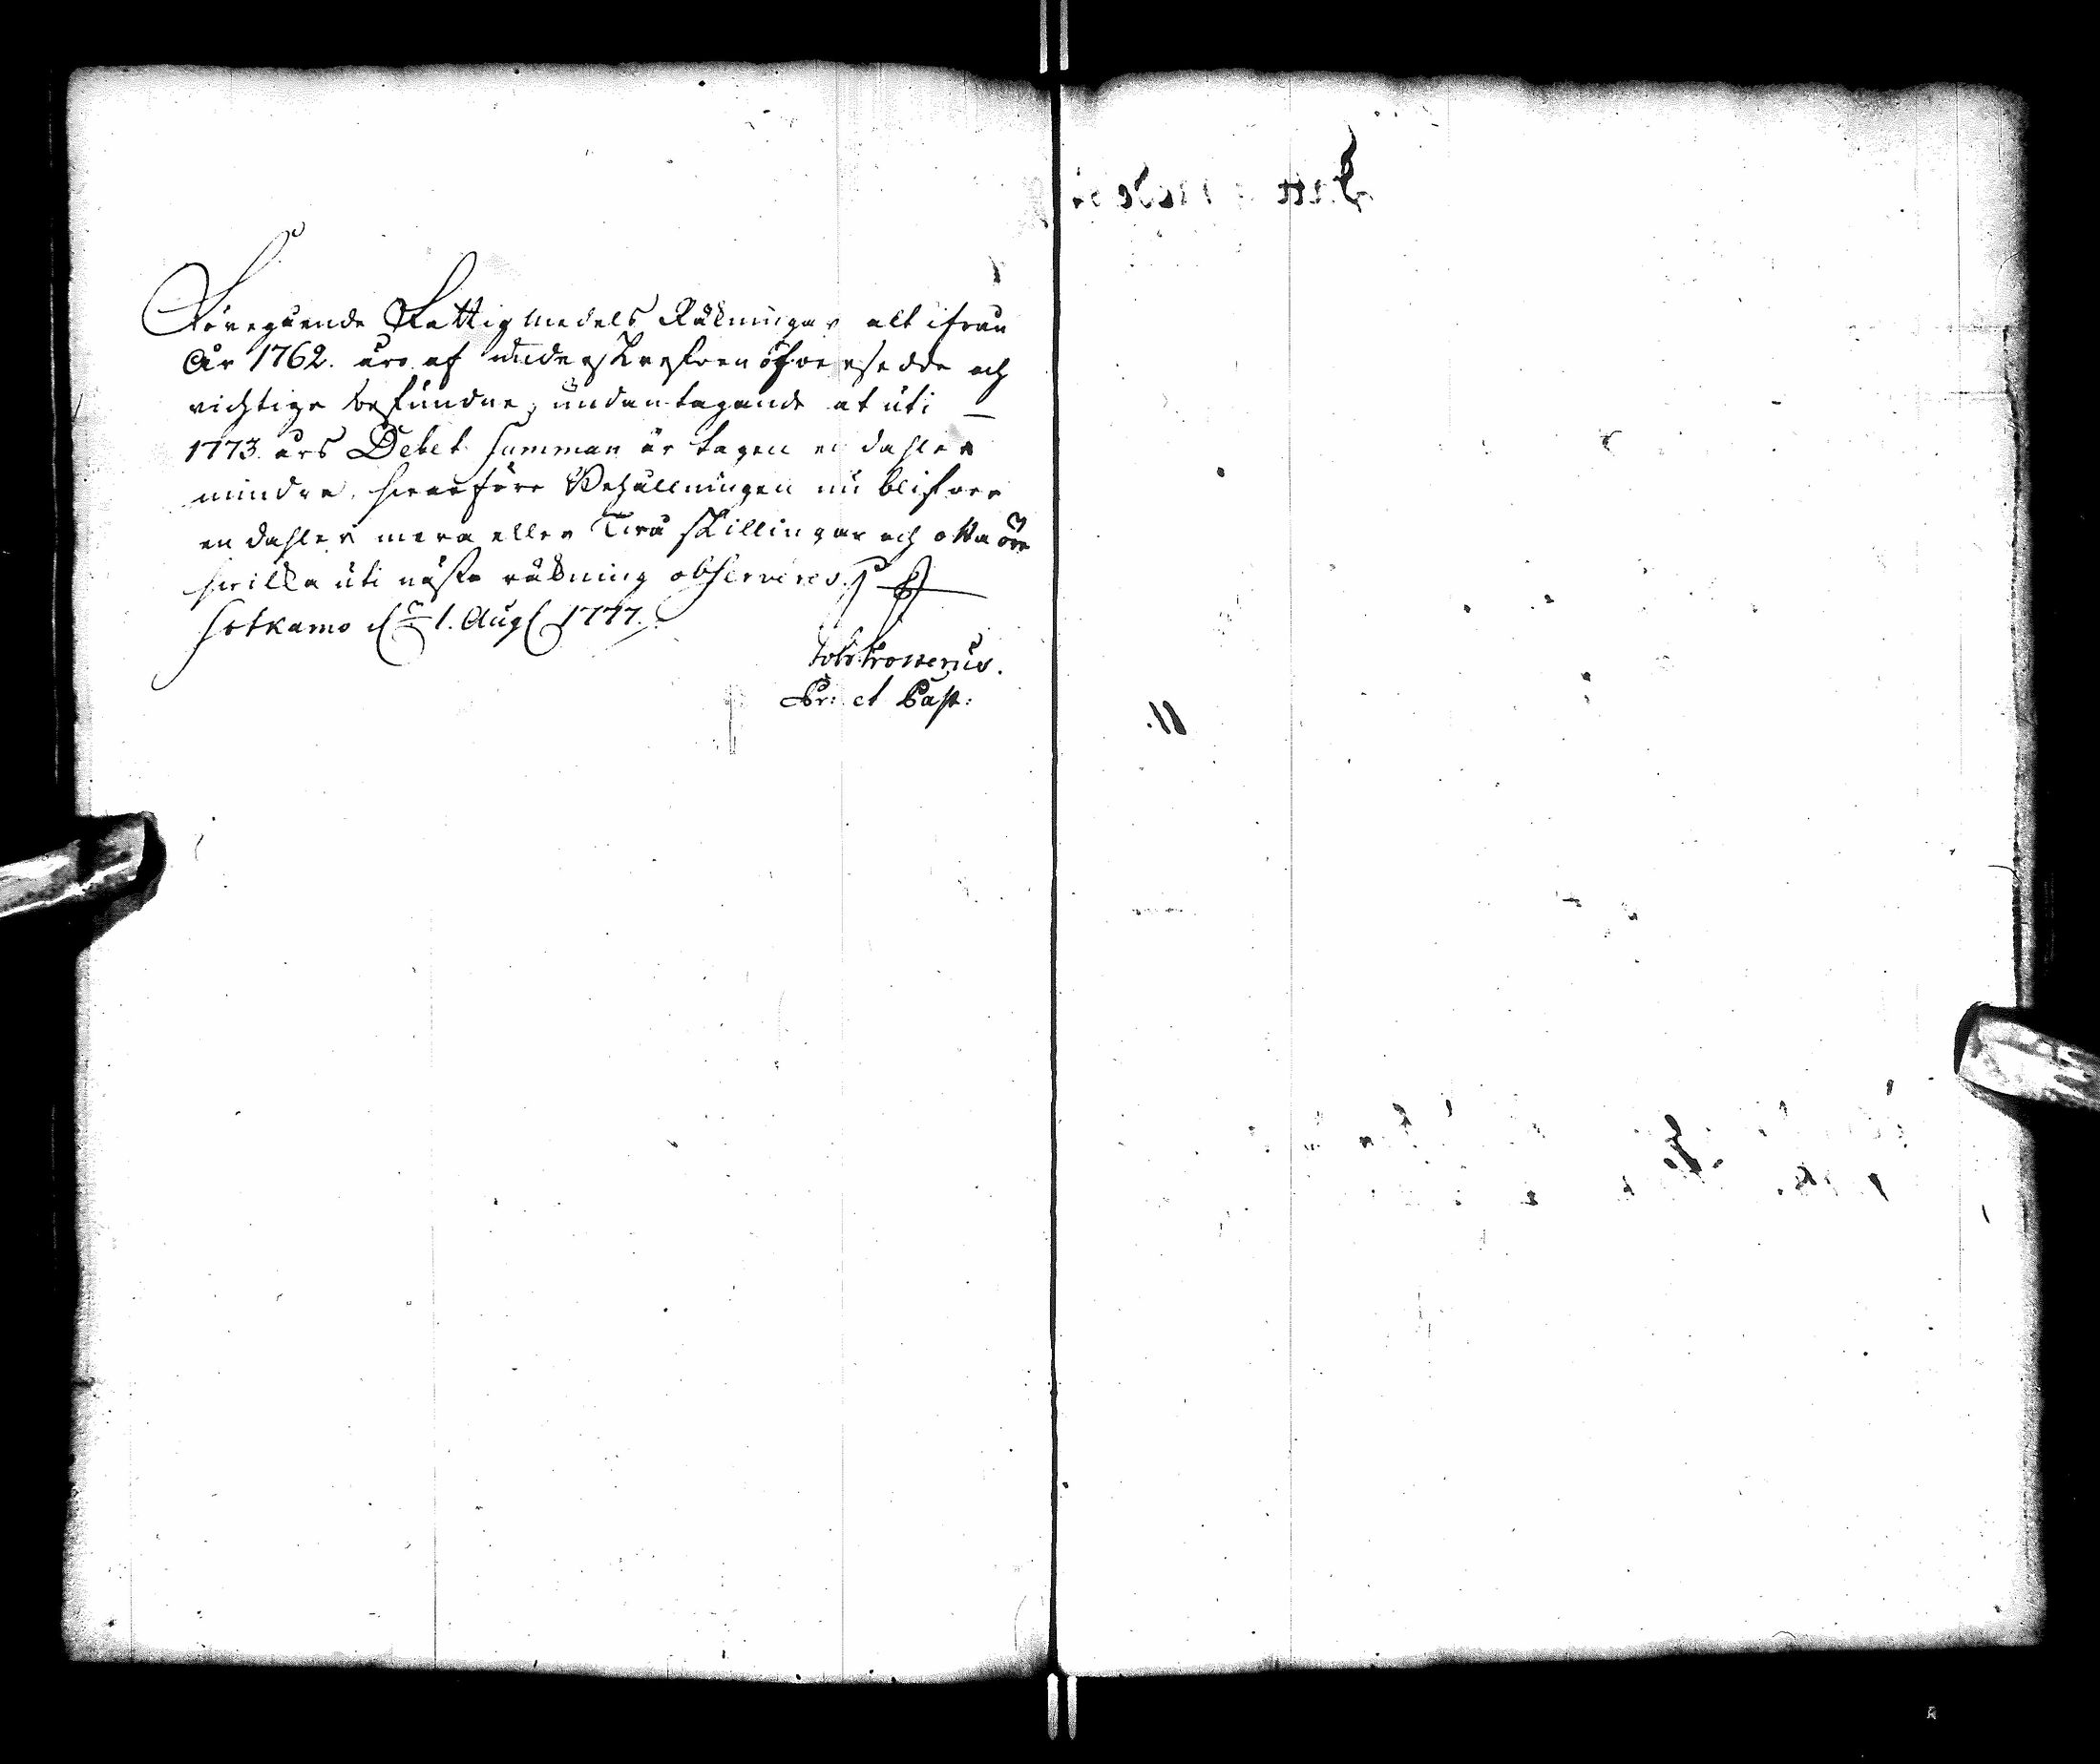 Föregående Fattigmedels Räkningar alt ifrån
År 1762. äro af underskrefven öfversedde och
richtige befundne, undantagande at uti
1773. års Debet Summan är tagen en dahler
mindre, hvarföre Behållningen nu blifver
en dahler mera eller Två skillingar och otta öre
hvilka uti nästa räkning observeres.
Sotkamo d. 1. Aug 1777.
Pr: et Past: